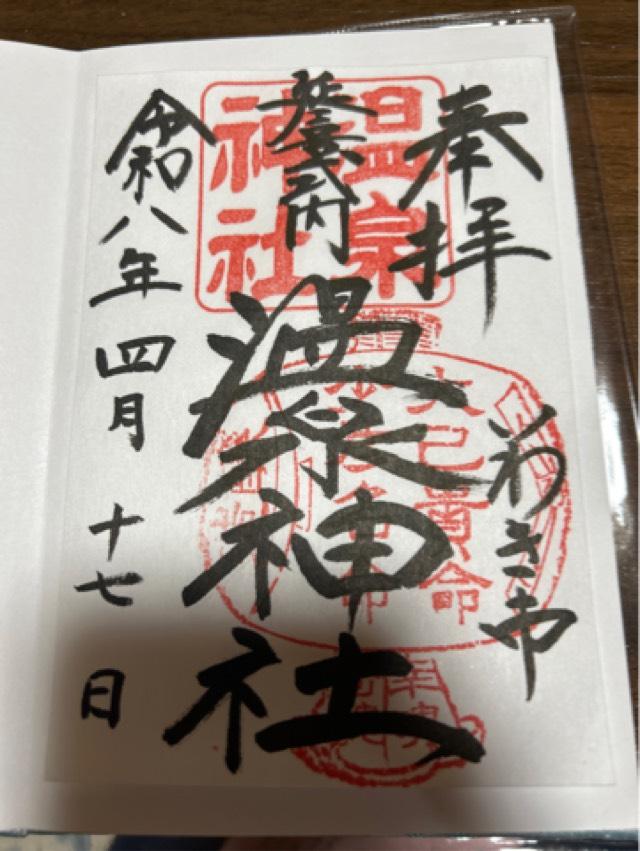 奉拝
いわき市
延喜式内
温泉神社
令和八年四月十七日
温泉
神社
大己貴命